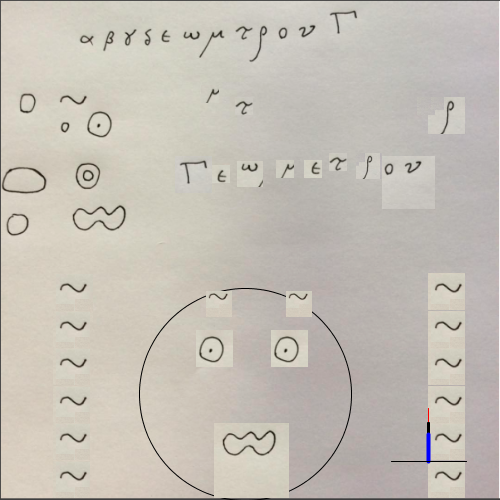 α β γ δ ε ω μ τ ρ ο υ Γ
μ τ ρ
Γ ε ω, μ ε τ ρ ο υ